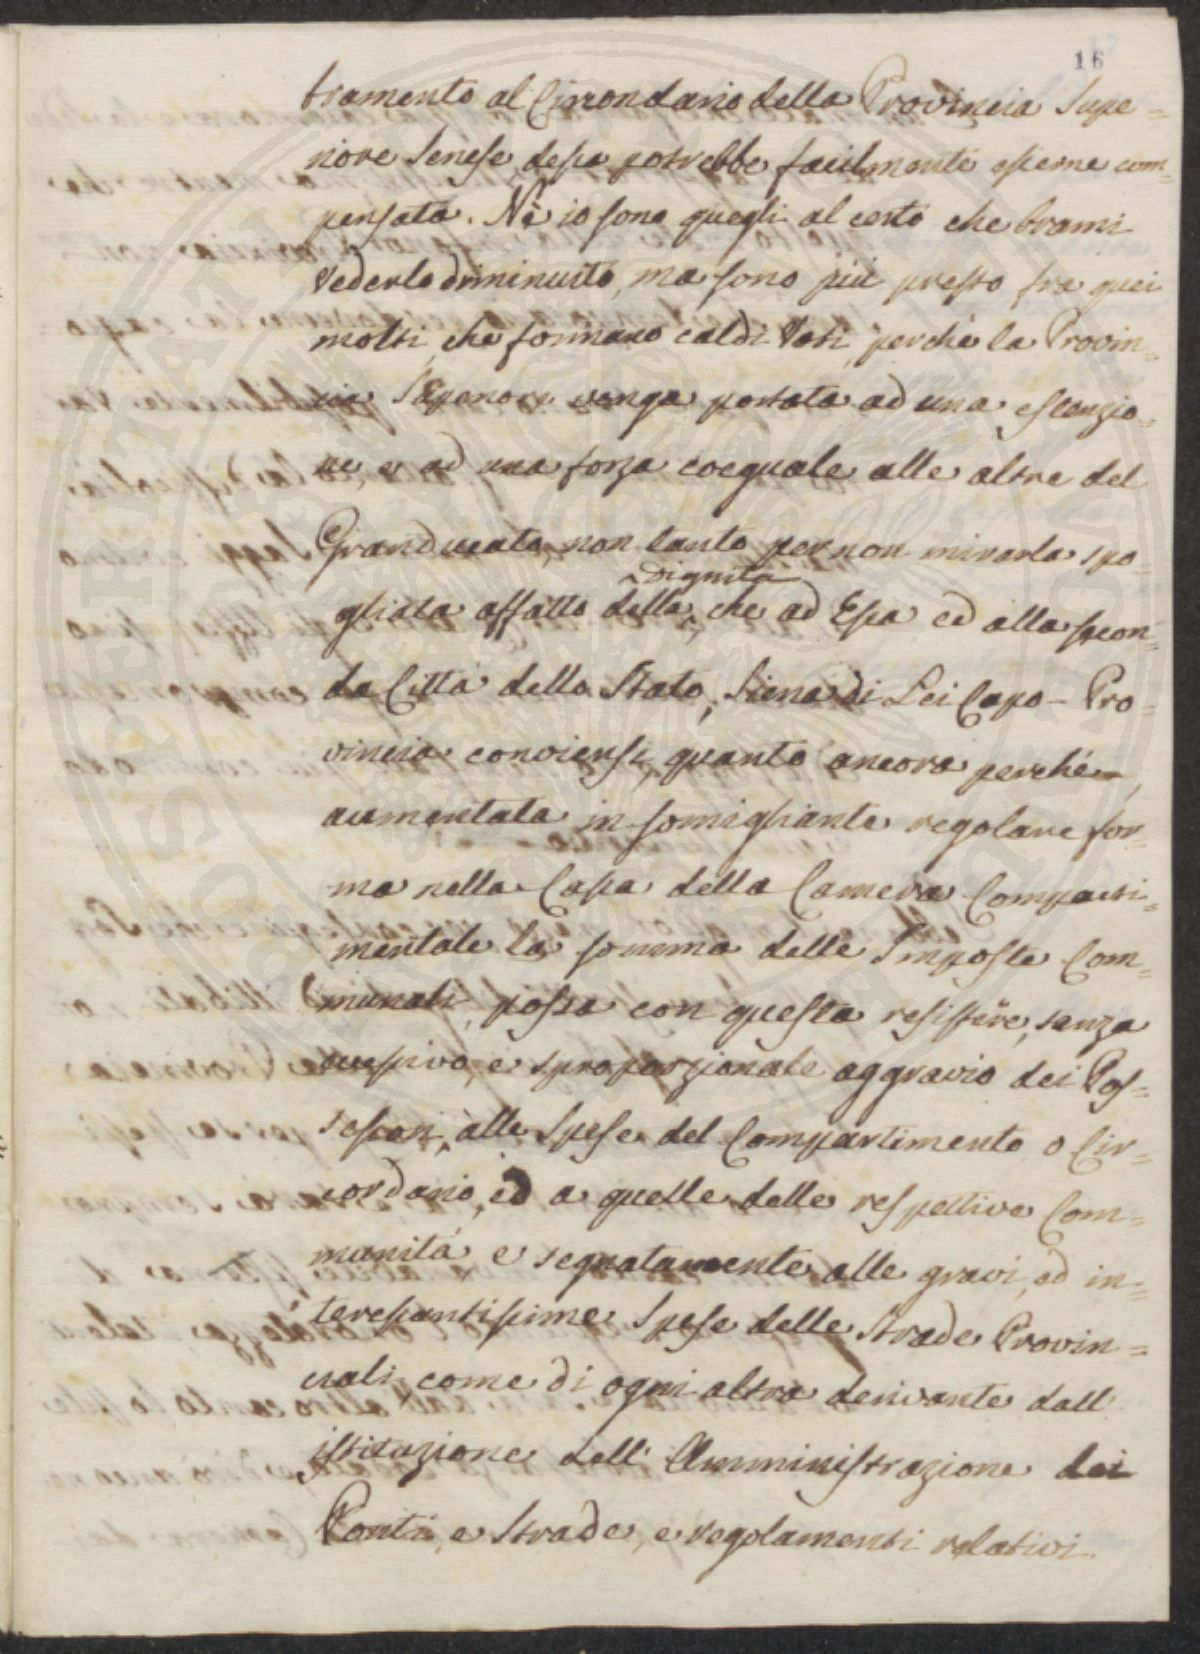 16
tramento al Circondario della Provincia Supe=
riore Senese, dessa potrebbe facilmente esserne com=
pensata. Nè io sono quegli al certo che brami
vederlo diminuito, ma sono più presto fra quei
molti, che formano caldi Voti, perchè la Provin=
cia Superiore venga portata ad una estenzio=
ne, e ad una forza coeguale alle altre del
Granducato, non tanto per non mirarla spo=
gliata affatto della dignità che ad Essa ed alla secon=
da Città dello Stato, Siena di Lei Capo-Pro=
vincia conviensi, quanto ancora perchè,
aumentata in somigliante regolare for=
ma nella Cassa della Camera Comparti=
mentale la somma delle Imposte Com=
munali, possa con questa resistere, senza
eccessivo, e sproporzionale aggravio dei Pos=
sessori, alle Spese del Compartimento o Cir=
cordario, ed a quelle delle respettive Com=
munità e segnatamente alle gravi, ed in=
teressantissime Spese delle Strade Provin=
ciali, come di ogni altra derivante dall'
istituzione dell' Amministrazione dei
Ponti, e Strade, e regolamenti relativi.